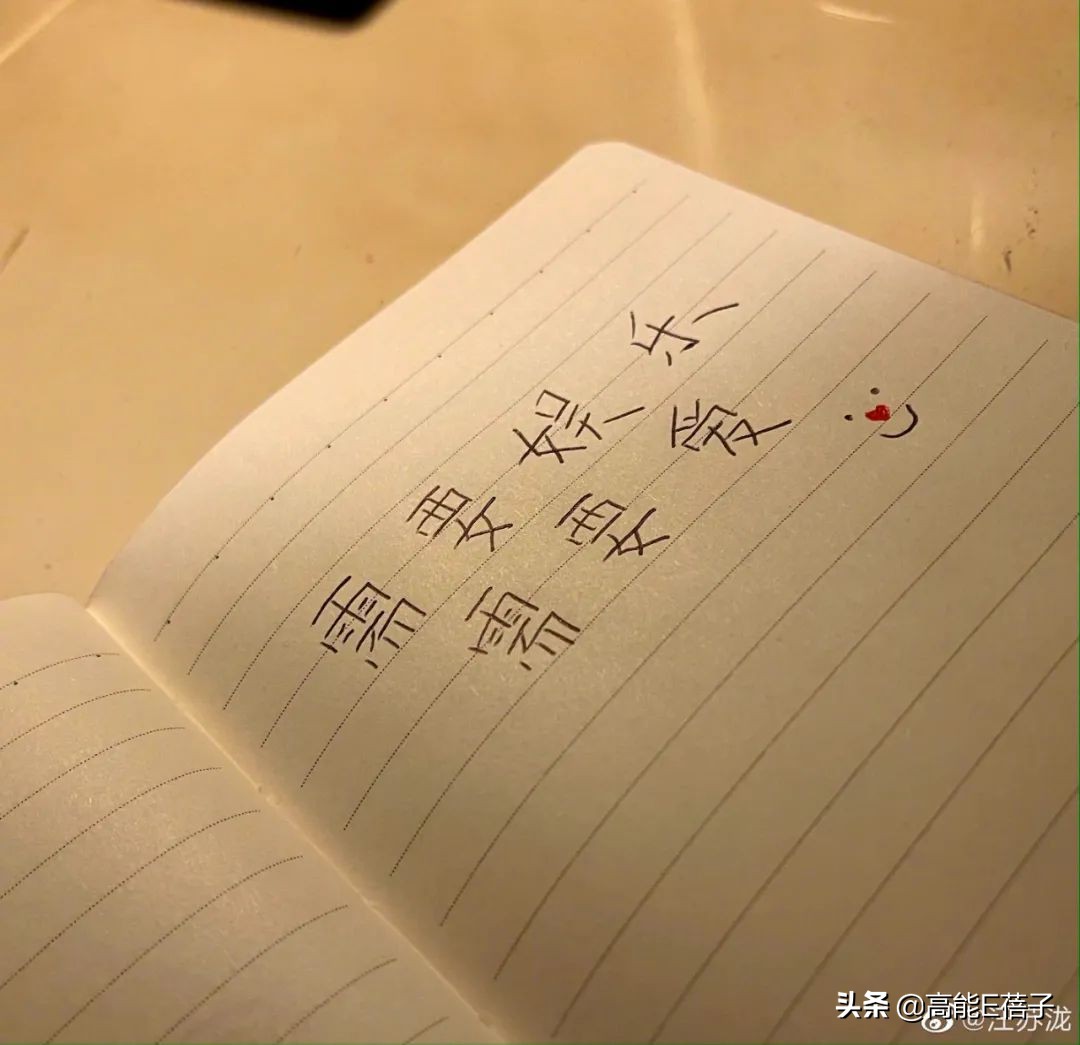 需要娱乐
需要爱
头条 @高能E蓓子
@江苏泷